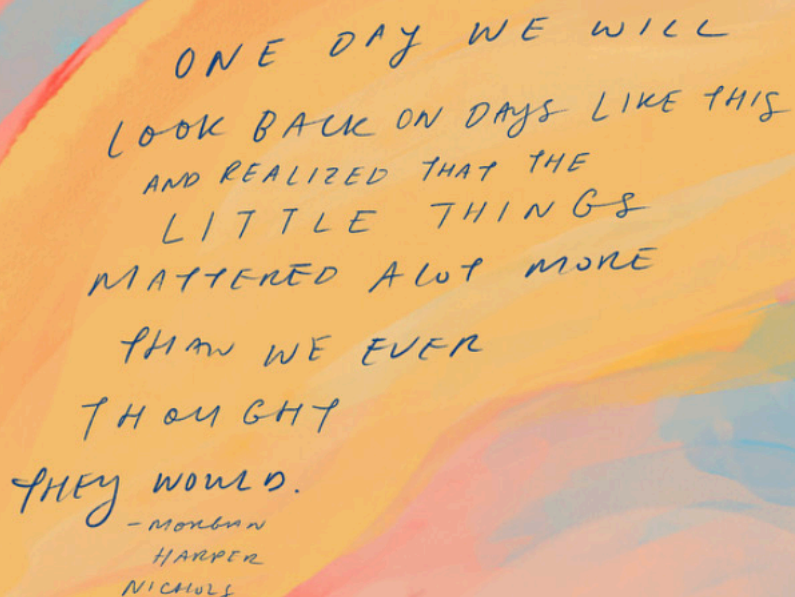 ONE DAY WE WILL
LOOK BACK ON DAYS LIKE THIS
AND REALIZED THAT THE
LITTLE THINGS
MATTERED A LOT MORE
THAN WE EVER
THOUGHT
THEY WOULD.
- MORGAN
HARPER
NICHOLS